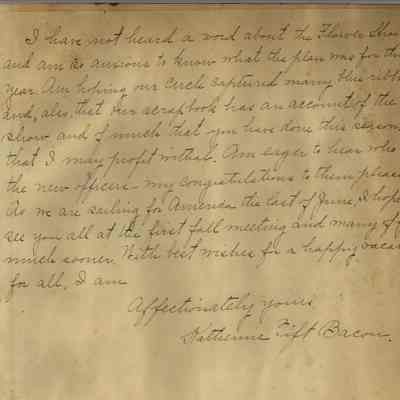 I have not heard a word about the Flower Show
and am so anxious to know what the plan was for this
year. Am hoping our Circle captured many blue ribb
and, also, that our scrapbook has an account of the
show and of much that you have done this season
that I may profit withal. Am eager to hear who
the new officers - my congratulations to them please
As we are sailing for America the last of June, I hope
see you all at the first fall meeting and many of y
much sooner. With best wishes for a happy vaca
for all, I am
Affectionately yours
Katherine Tift Bacon.